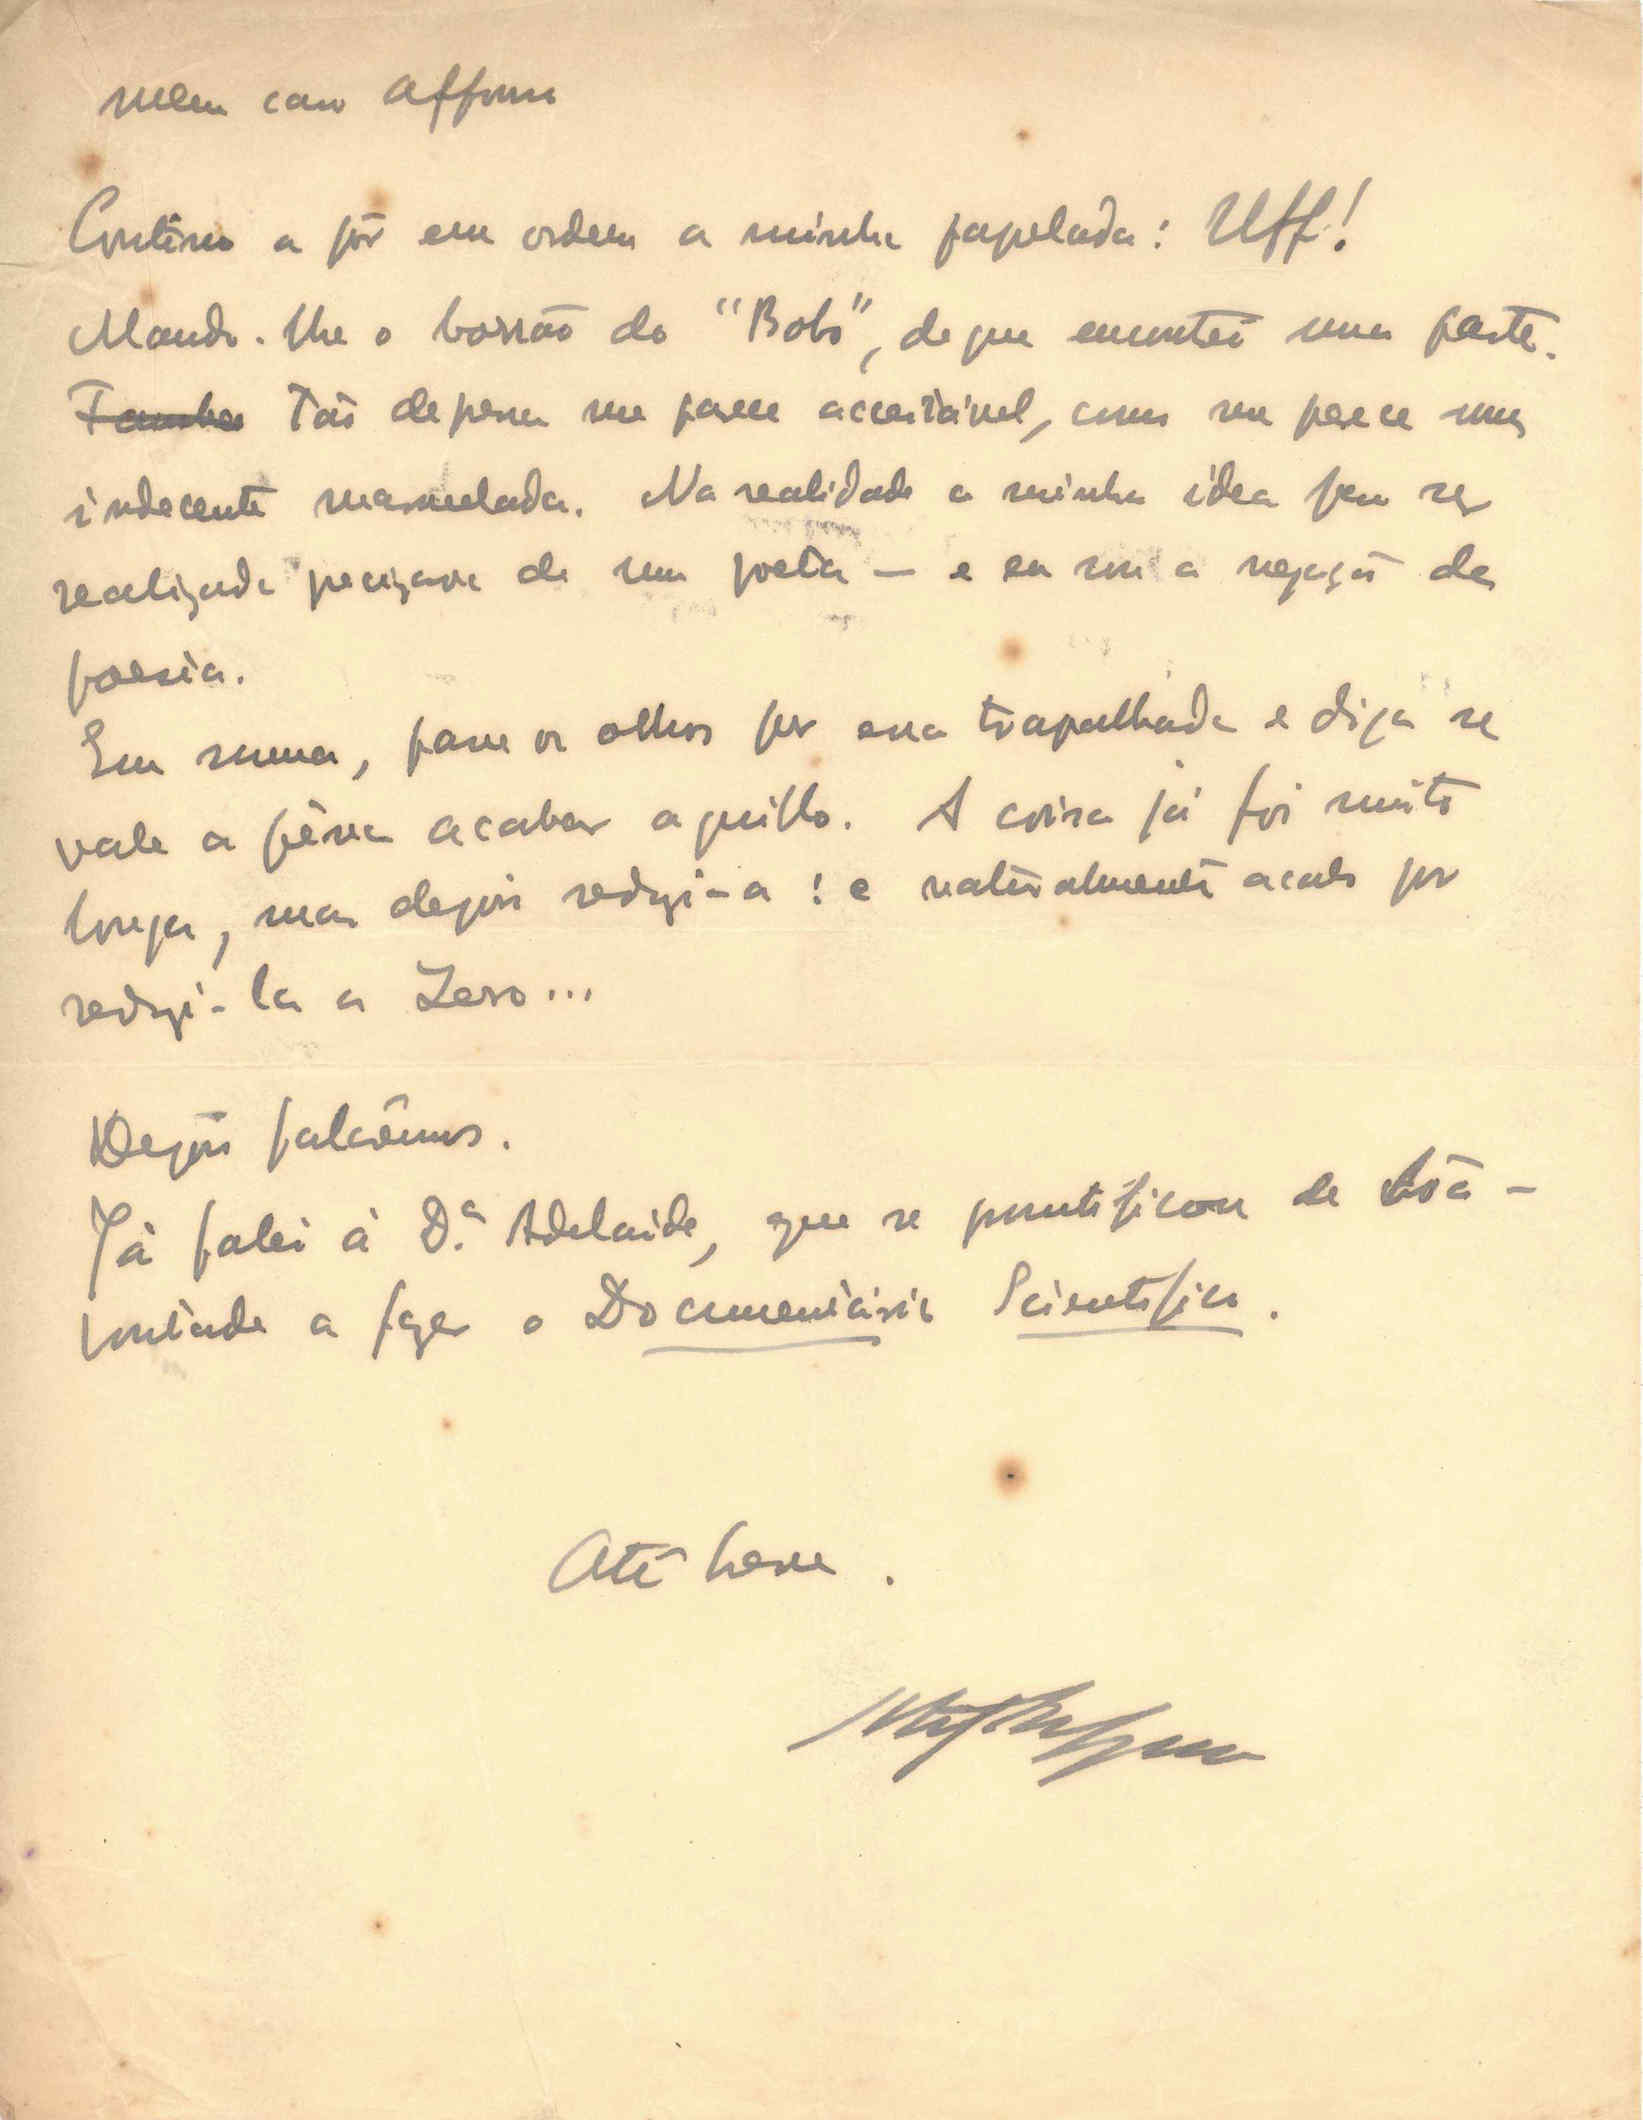 Meu caro Affonso
Continuo a pôr em ordem a minha papelada: Uff!
Mando-lhe o borrão do "Bobo", de que encontrei uma parte.
Tambem Tão depressa me parece acceitável, como me parece uma
indecente marmelada. Na realidade a minha idea para ser
realizada precizava de um poeta — e eu sou a negação da
poesia.
Em summa, passe os olhos por essa trapalhada e diga se
vale a pêna acabar aquillo. A coisa já foi muito
longa, mas depois reduzi-a: e naturalmente acabo por
reduzi-la a Zero...
Depois falarêmos.
Já falei á D.ª Adelaide, que se promtificou de bôa-
vontade a fazer o Documentário Scientifico.
Até breve.